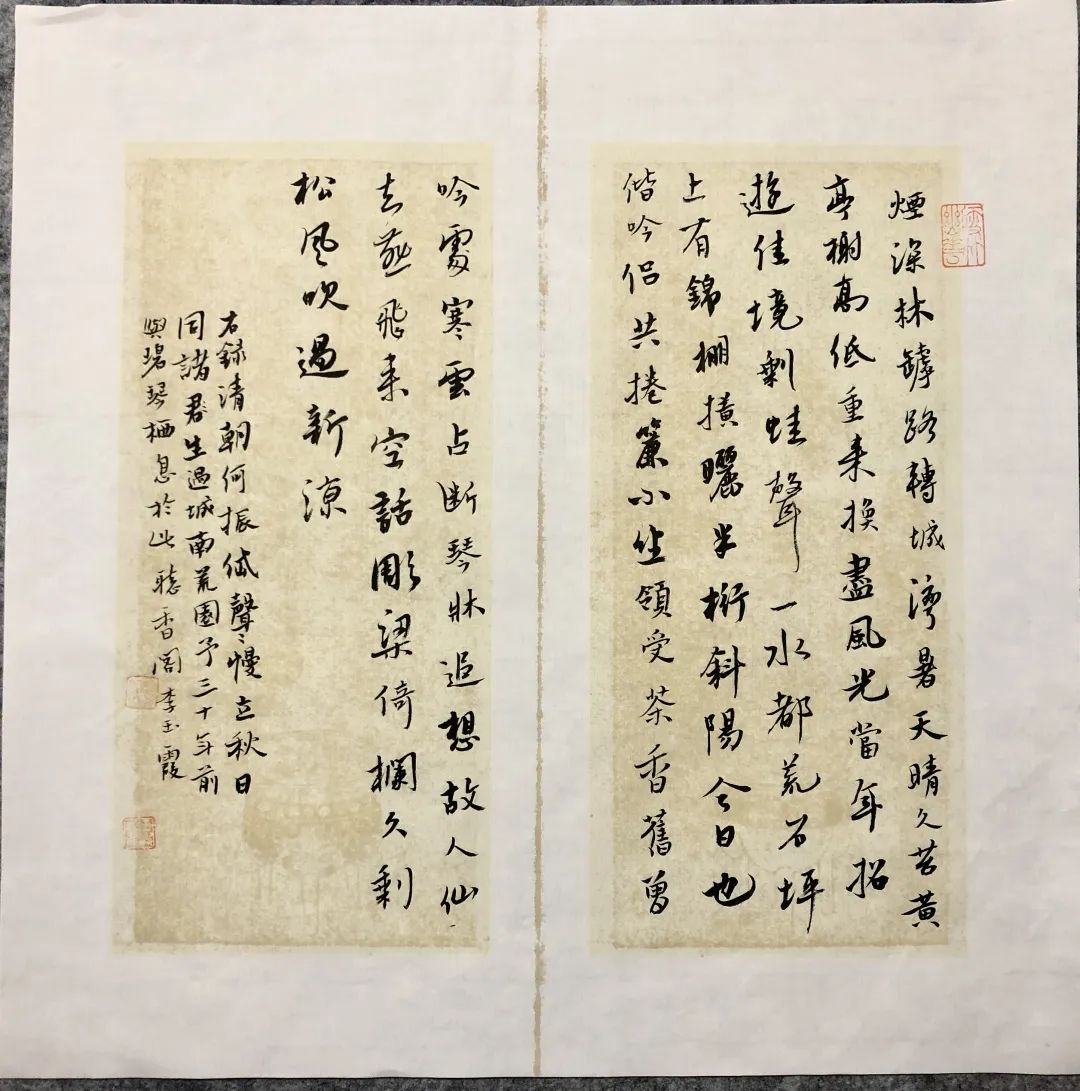 煙深林罅路轉城灣暑天晴久苔黃
亭榭高低重来換盡風光當年招
遊佳境剩蛙聲一水都荒石坪
上有錦棚撗曬半桁斜陽今日也
偕吟侶共捲簾小坐領受茶香舊曾
吟處寒雲占断琴牀追想故人仙
去燕飛来空話彫梁倚欄久剩
松風吹過新涼
右録清朝何振岱聲〻慢立秋日
同諸君生過城南荒園予三十年前
與碧琴栖息於此聽香閣李玉霞